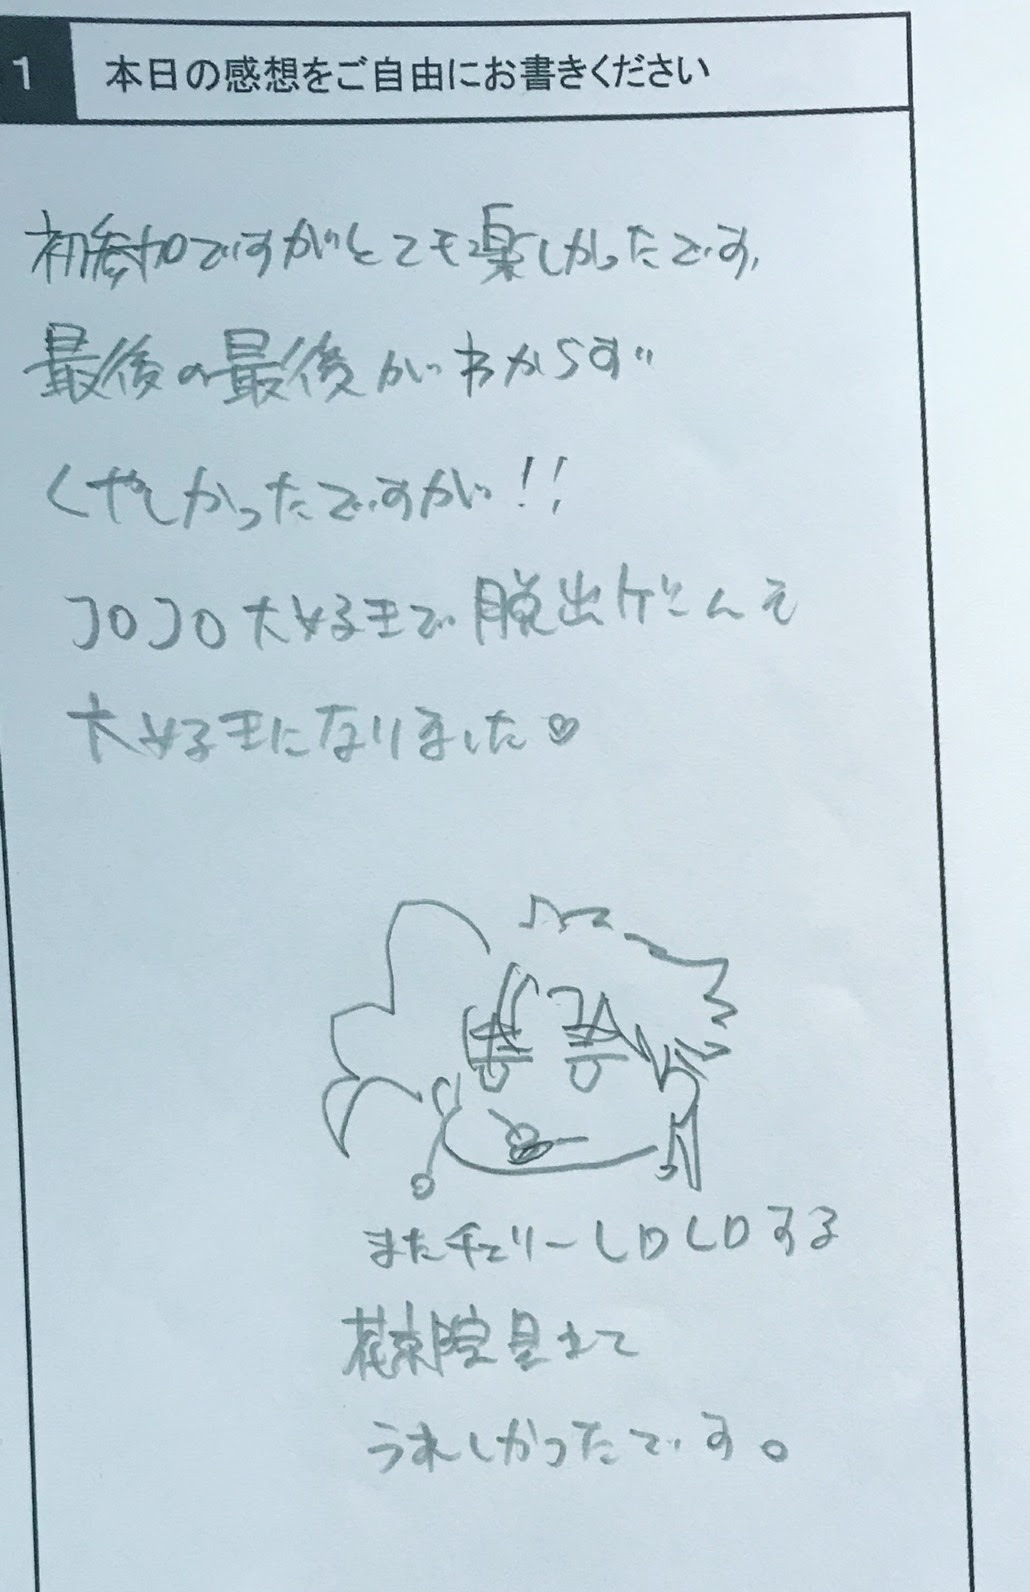 1 本日の感想をご自由にお書きください
初参加ですがとても楽しかったです、
最後の最後がわからず
くやしかったですが!!
JOJO大好きで脱出ゲームも
大好きになりました♡
またチェリーLOLOする
花京院見れて
うれしかったです。